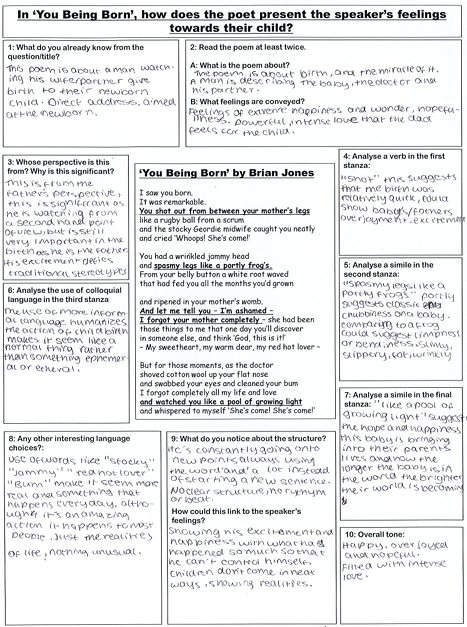 In 'You Being Born', how does the poet present the speaker's feelings
towards their child?
1: What do you already know from the
question/title?
This poem is about a man watch-
ing his wife/partner give
birth to their newborn
child. Direct address, aimed
at the newborn.
2: Read the poem at least twice.
A: What is the poem about?
The poem is about birth, and the miracle of it.
A man is describing the baby, the doctor and
his partner.
B: What feelings are conveyed?
Feelings of extreme happiness and wonder, hopefu-
llness. Powerful, intense love that the dad
feels for the child.
3: Whose perspective is this
from? Why is this significant?
This is from the
father's perspective,
this is significant as
he is watching from
a second hand point
of view, but is still
very important in the
birth as he is the father
His excitement defies
traditional stereotypes
'You Being Born' by Brian Jones
I saw you born.
It was remarkable.
You shot out from between your mother's legs
like a rugby ball from a scrum
and the stocky Geordie midwife caught you neatly
and cried 'Whoops! She's come!'
You had a wrinkled jammy head
and spasmy legs like a portly frog's.
From your belly button a white root waved
that had fed you all the months you'd grown
and ripened in your mother's womb.
And let me tell you – I'm ashamed –
I forgot your mother completely – she had been
those things to me that one day you'll discover
in someone else, and think 'God, this is it!'
– My sweetheart, my warm dear, my red hot lover –
But for those moments, as the doctor
shoved cotton wool up your flat nose
and swabbed your eyes and cleaned your bum
I forgot completely all my life and love
and watched you like a pool of growing light
and whispered to myself 'She's come! She's come!'
4: Analyse a verb in the first
stanza:
"Shot" this suggests
that the birth was
relatively quick, could
show baby's/fathers
overjoyment, excitement
5: Analyse a simile in the
second stanza:
"spasmy legs like a
portly frogs" portly
suggests classic
chubbiness on a baby.
comparing to a frog
could suggest limpness
or bendiness, slimy,
slippery, fat, wrinkly
6: Analyse the use of colloquial
language in the third stanza
The use of more inform
al language humanizes
the action of childbirth
makes it seem like a
normal thing rather
than something ephemer
al or etheral.
7: Analyse a simile in the final
stanza: "like a pool of
growing light" suggests
the hope and happiness
this baby is bringing
into their parents
lives and how the
longer the baby is in
the world the brighter
their world is becoming
8: Any other interesting language
choices?:
use of words like "stocky"
"Jammy" "red hot lover"
"Bum" make it seem more
real and something that
happens everyday, altho-
ugh it's an amazing
action it happens to most
people. Just the realities
of life, nothing unusual.
9: What do you notice about the structure?
It's constantly going onto
new points always using
the word 'and' a lot instead
of starting a new sentence.
No clear structure, no rythym
or beat.
How could this link to the speaker's
feelings?
Showing his excitement and
happiness with what had
happened so much so that
he can't control himself,
children don't come in neat
ways, showing realities.
10: Overall tone:
Happy, overjoyed
and hopeful.
Filled with intense
love.